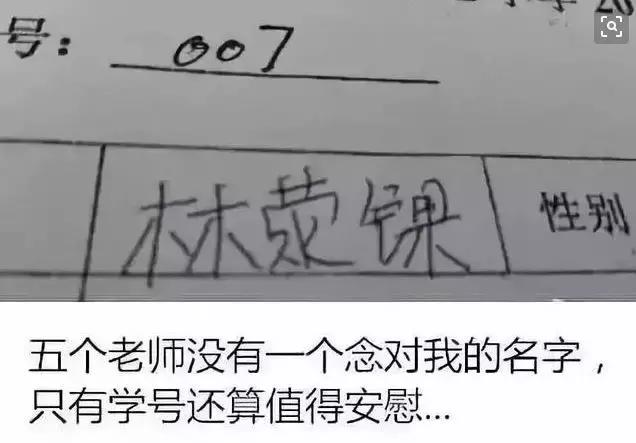 号： 007
林荥锞 性别
五个老师没有一个念对我的名字，
只有学号还算值得安慰...